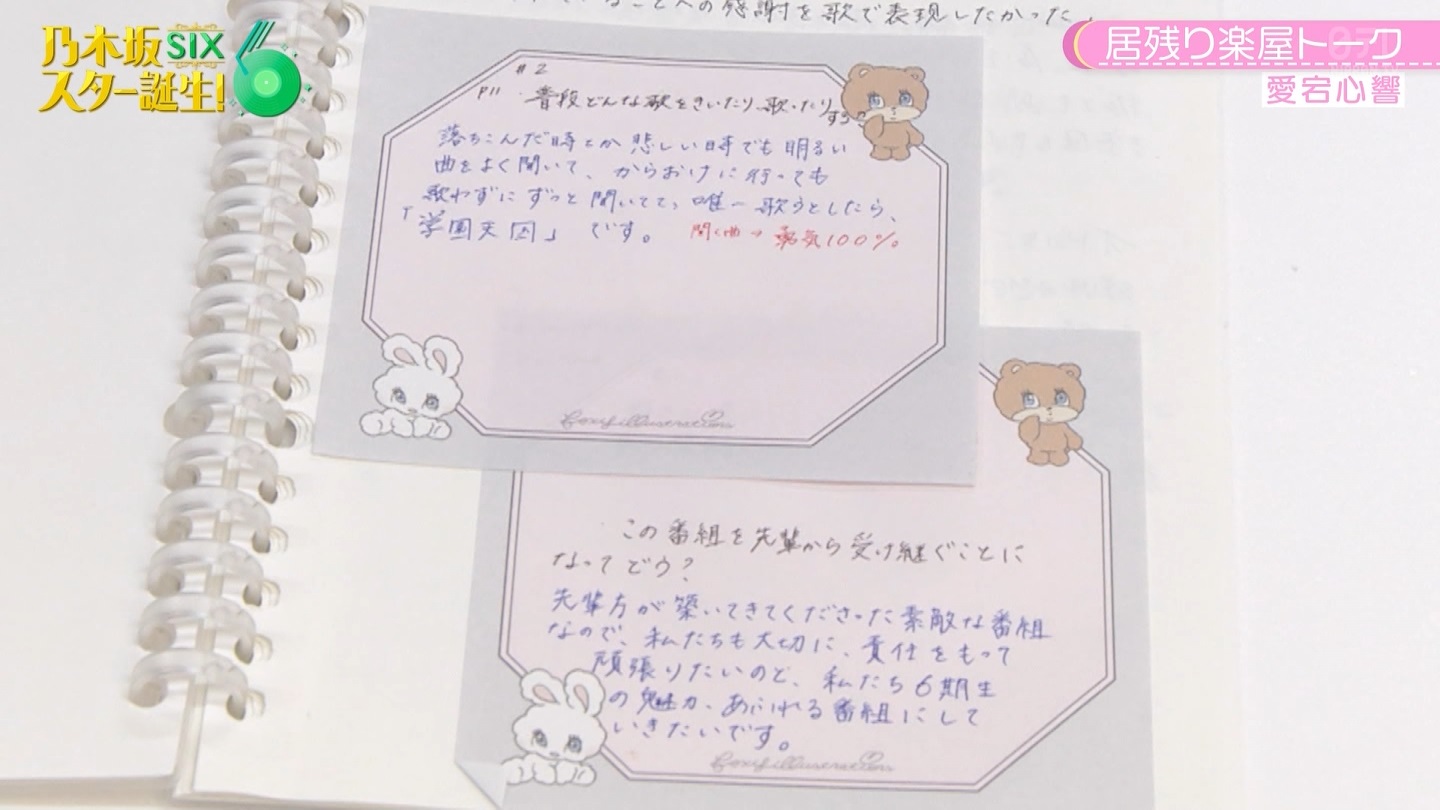 乃木坂SIX
スター誕生!6
居残り楽屋トーク
愛宕心響
ることへの感謝を歌で表現したかった」
#2
普段どんな歌をきいたり、歌ったり
する?
落ちこんだ時とか悲しい時でも明るい
曲をよく聞いて、からおけに行っても
歌わずにずっと聞いてて、唯一歌うとしたら、
「学園天国」です。 聞く曲→勇気100%
この番組を先輩から受け継ぐことに
なってどう?
先輩方が築いてきてくださった素敵な番組
なので、私たちも大切に、責任をもって
頑張りたいのと、私たち6期生
の魅力、あふれる番組にして
いきたいです。